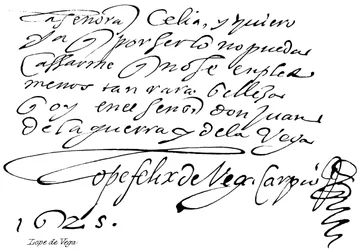 a señora Celia, y quiero
ya q por serlo no pueda
cassarme q no se emplee
menos tan rara belleza
q oy en el señor don Juan
de la guerra y de la Vega
Lope felix de Vega Carpio
1625.
Lope de Vega